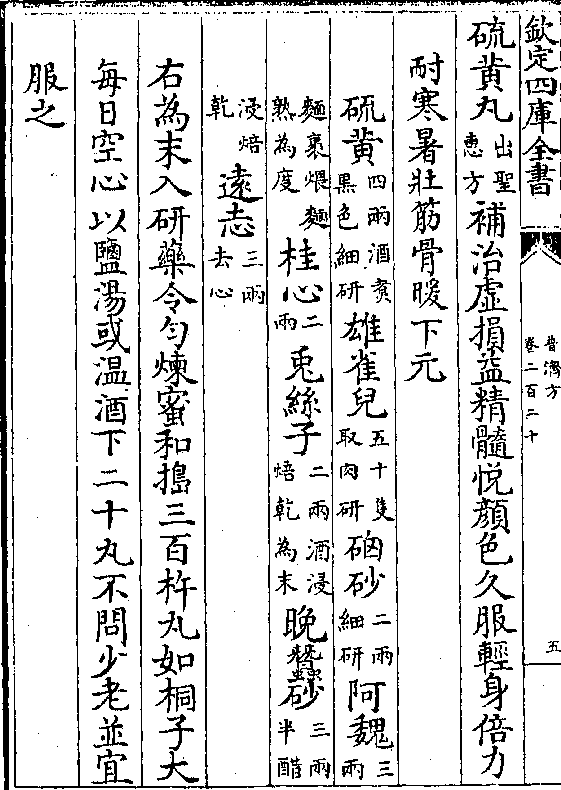 欽定四庫全書
普濟方
卷二百二十
五
硫黄丸出聖惠方補治虛損益精髓悅顔色久服輕身倍力
耐寒暑壯筋骨暖下元
硫黄四兩酒煑黒色細研雄雀兒五十隻取肉研硇砂二兩細研阿魏三兩
麵裹煨麵熟為度桂心二兩兎絲子二兩酒浸焙乾為末晚蠶砂三兩半醋
浸焙乾遠志三兩去心
右為末入研藥令勻煉蜜和搗三百杵丸如桐子大
每日空心以鹽湯或温酒下二十丸不問少老並宜
服之